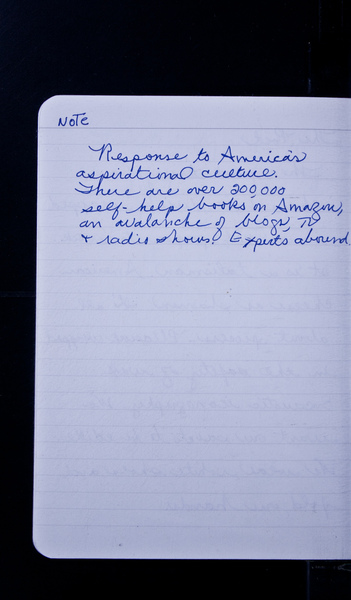 NOTE
Response to America's
aspirational culture.
There are over 200,000
self-help books on Amazon,
an avalanche of blogs, TV
+ radio shows! Experts abound.